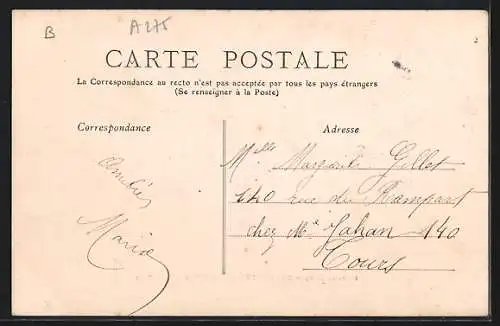 B
A275
CARTE POSTALE
La Correspondance au recto n'est pas acceptée par tous les pays étrangers
(Se renseigner à la Poste)
Correspondance
Adresse
Amitiés
Maria
Mlle Margarite Gillet
140 rue du Rampart
chez Mr Jahan 140
Tours